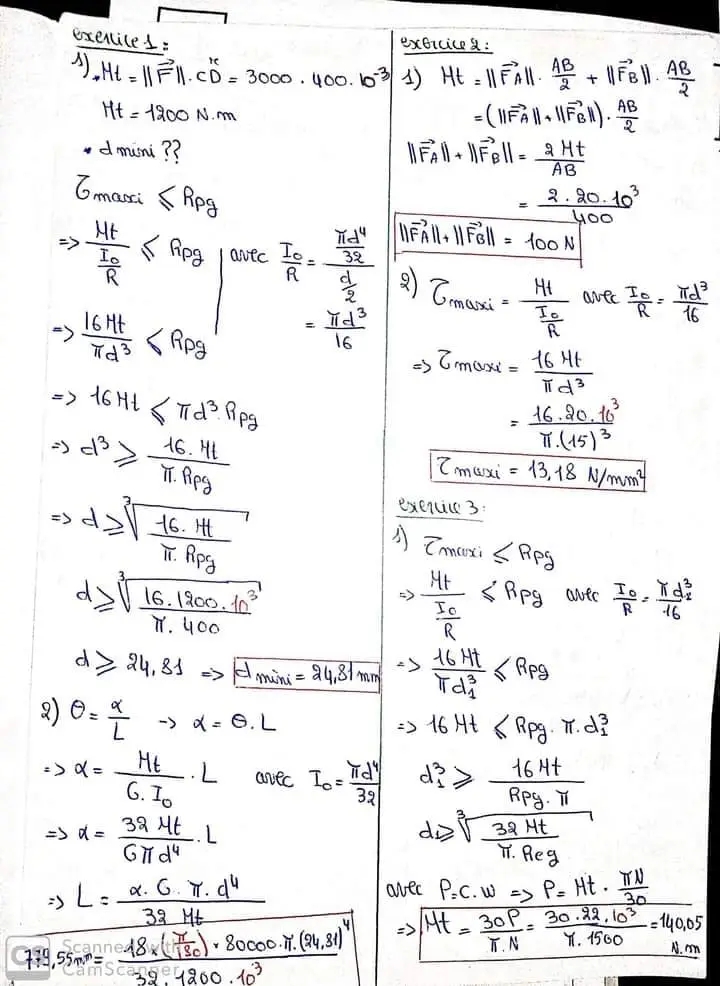 exercice 1:
1) • Mt = ||F⃗||. CD = 3000 . 400. 10⁻³
Mt = 1200 N.m
• d mini ??
τmaxi ⩽ Rpg
=> Mt/(I₀/R) ⩽ Rpg | avec I₀/R = (πd⁴/32)/(d/2)
= πd³/16
=> 16Mt/πd³ ⩽ Rpg
=> 16Mt ⩽ πd³.Rpg
=> d³ ⩾ 16.Mt/π.Rpg
=> d ⩾ ³√(16.Mt/π.Rpg)
d ⩾ ³√(16.1200.10³/π.400)
d ⩾ 24,81 => d mini = 24,81 mm
2) θ = α/L -> α = θ.L
=> α = Mt/G.I₀ . L avec I₀ = πd⁴/32
=> α = 32 Mt/Gπd⁴ . L
=> L = α.G.π.d⁴/32 Mt
779,55mm = 18×(π/180)×80000.π.(24,81)⁴/32.1200.10³
exercice 2:
1) Mt = ||F⃗A||. AB/2 + ||F⃗B||. AB/2
= (||F⃗A||+||F⃗B||). AB/2
||F⃗A||+||F⃗B|| = 2Mt/AB
= 2.20.10³/400
||F⃗A||+||F⃗B|| = 100 N
2) τmaxi = Mt/(I₀/R) avec I₀/R = πd³/16
=> τmaxi = 16 Mt/πd³
= 16.20.10³/π.(15)³
τmaxi = 13,18 N/mm²
exercice 3:
1) τmaxi ⩽ Rpg
=> Mt/(I₀/R) ⩽ Rpg avec I₀/R = πd₁³/16
=> 16Mt/πd₁³ ⩽ Rpg
=> 16Mt ⩽ Rpg.π.d₁³
d₁³ ⩾ 16Mt/Rpg.π
d₁ ⩾ ³√(32Mt/π.Reg)
avec P=C.w => P= Mt . πN/30
=> Mt = 30P/π.N = 30.22.10³/π.1500 = 140,05 N.m
CS Scanned with
CamScanner